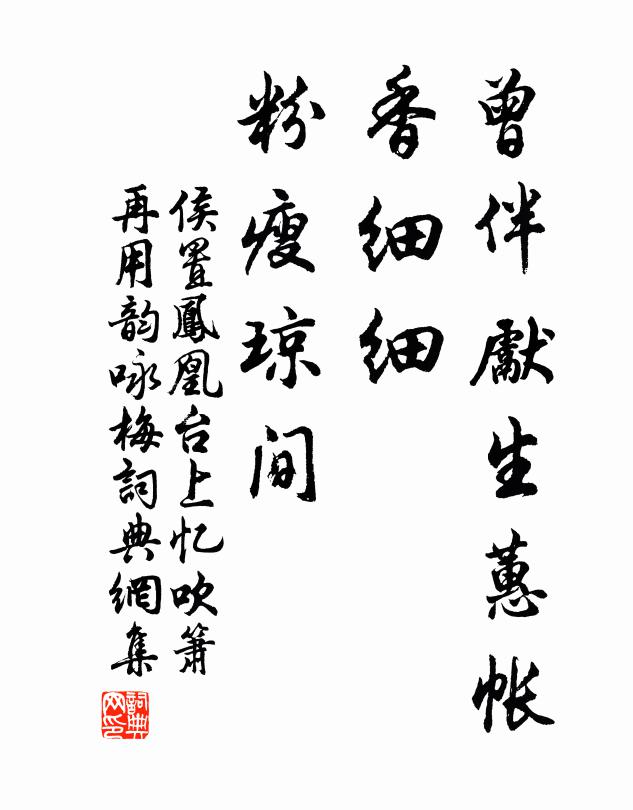 曾伴獻生蕙帐
香细细
粉瘦琼间
侯置鳳凰台上忆吹簫
再用韵咏梅詞典網集
詞典网印